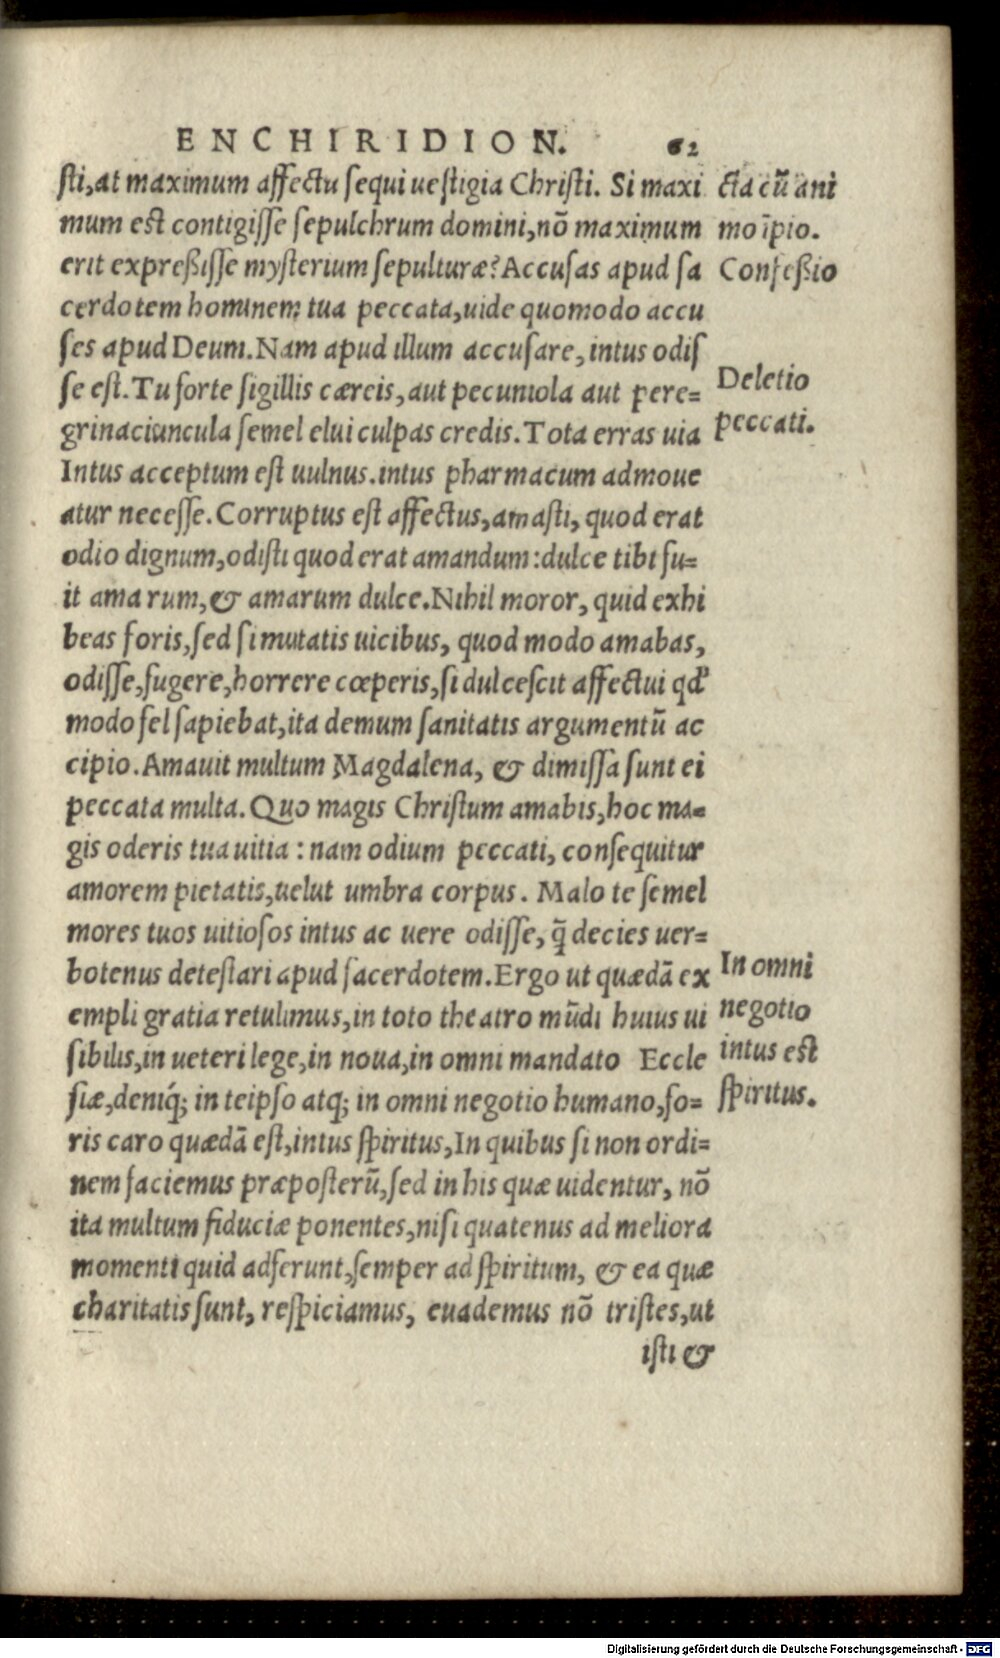 ENCHIRIDION. 62
sti, at maximum affectu sequi uestigia Christi. Si maxi
mum est contigisse sepulchrum domini, nō maximum
erit expreßisse mysterium sepulturæ? Accusas apud sa
cerdotem hominem tua peccata, uide quomodo accu
ses apud Deum. Nam apud illum accusare, intus odis
se est. Tu forte sigillis cæreis, aut pecuniola aut pere=
grinaciuncula semel elui culpas credis. Tota erras uia
Intus acceptum est uulnus. intus pharmacum admoue
atur necesse. Corruptus est affectus, amasti, quod erat
odio dignum, odisti quod erat amandum: dulce tibi fu=
it amarum, & amarum dulce. Nihil moror, quid exhi
beas foris, sed si mutatis uicibus, quod modo amabas,
odisse, fugere, horrere cœperis, si dulcescit affectui qd'
modo fel sapiebat, ita demum sanitatis argumentū ac
cipio. Amauit multum Magdalena, & dimissa sunt ei
peccata multa. Quo magis Christum amabis, hoc ma=
gis oderis tua uitia: nam odium peccati, consequitur
amorem pietatis, uelut umbra corpus. Malo te semel
mores tuos uitiosos intus ac uere odisse, q̄ decies uer=
botenus detestari apud sacerdotem. Ergo ut quædā ex
empli gratia retulimus, in toto theatro mūdi huius ui
sibilis, in ueteri lege, in noua, in omni mandato Eccle
siæ, deniq́; in teipso atq; in omni negotio humano, fo=
ris caro quædā est, intus spiritus, In quibus si non ordi=
nem faciemus præposterū, sed in his quæ uidentur, nō
ita multum fiduciæ ponentes, nisi quatenus ad meliora
momenti quid adferunt, semper ad spiritum, & ea quæ
charitatis sunt, respiciamus, euademus nō tristes, ut
isti &
cta cū ani
mo īpio.
Confeßio
Deletio
peccati.
In omni
negotio
intus est
spiritus.
Digitalisierung gefördert durch die Deutsche Forschungsgemeinschaft - DFG